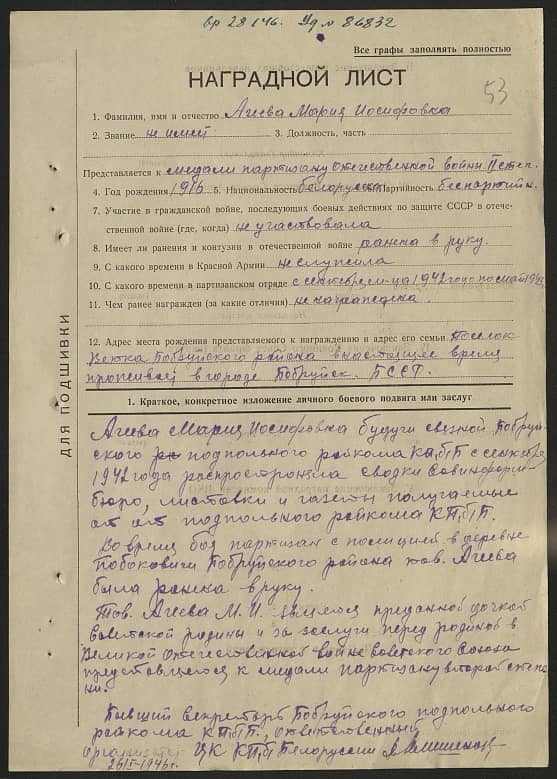 вр 28/46. Уд № 86832
Все графы заполнять полностью
53
НАГРАДНОЙ ЛИСТ
1. Фамилия, имя и отчество Агеева Мария Иосифовна
2. Звание не имеет 3. Должность, часть
Представляется к медали партизану отечественной войны II степ.
4. Год рождения 1916 5. Национальность белоруска Партийность беспартийн.
7. Участие в гражданской войне, последующих боевых действиях по защите СССР в отече-
ственной войне (где, когда) не участвовала
8. Имеет ли ранения и контузии в отечественной войне ранена в руку.
9. С какого времени в Красной Армии не служила
10. С какого времени в партизанском отряде с сентября м-ца 1942 года по май 1943
11. Чем ранее награжден (за какие отличия) не награждена.
12. Адрес места рождения представляемого к награждению и адрес его семьи Поселок
Бобруйского района в настоящее время
проживает в городе Бобруйск. БССР.
ДЛЯ ПОДШИВКИ
1. Краткое, конкретное изложение личного боевого подвига или заслуг
Агеева Мария Иосифовна будучи связной Бобруй-
ского подпольного райкома КП(б)Б с сентября
1942 года распространяла сводки Совинформ-
бюро, листовки и газеты получаемые
от подпольного райкома КП(б)Б.
Во время боя партизан с полицией в деревне
Бобруйского района тов. Агеева
была ранена в руку.
Тов. Агеева М.И. является преданной дочкой
советской родины и за заслуги перед родиной в
Великой отечественной войне Советского Союза
представляется к медали партизану второй степе-
ни.
Бывший секретарь Бобруйского подпольного
райкома КП(б)Б, ответственный
организатор ЦК КП(б) Белоруссии
26/I-1946г.